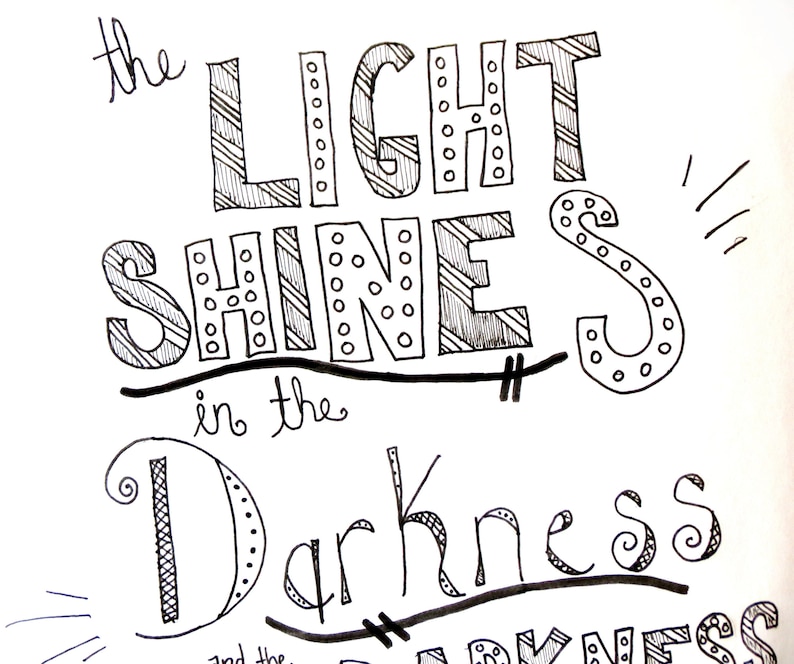 the
LIGHT
SHINES
in the
Darkness
and the DARKNESS